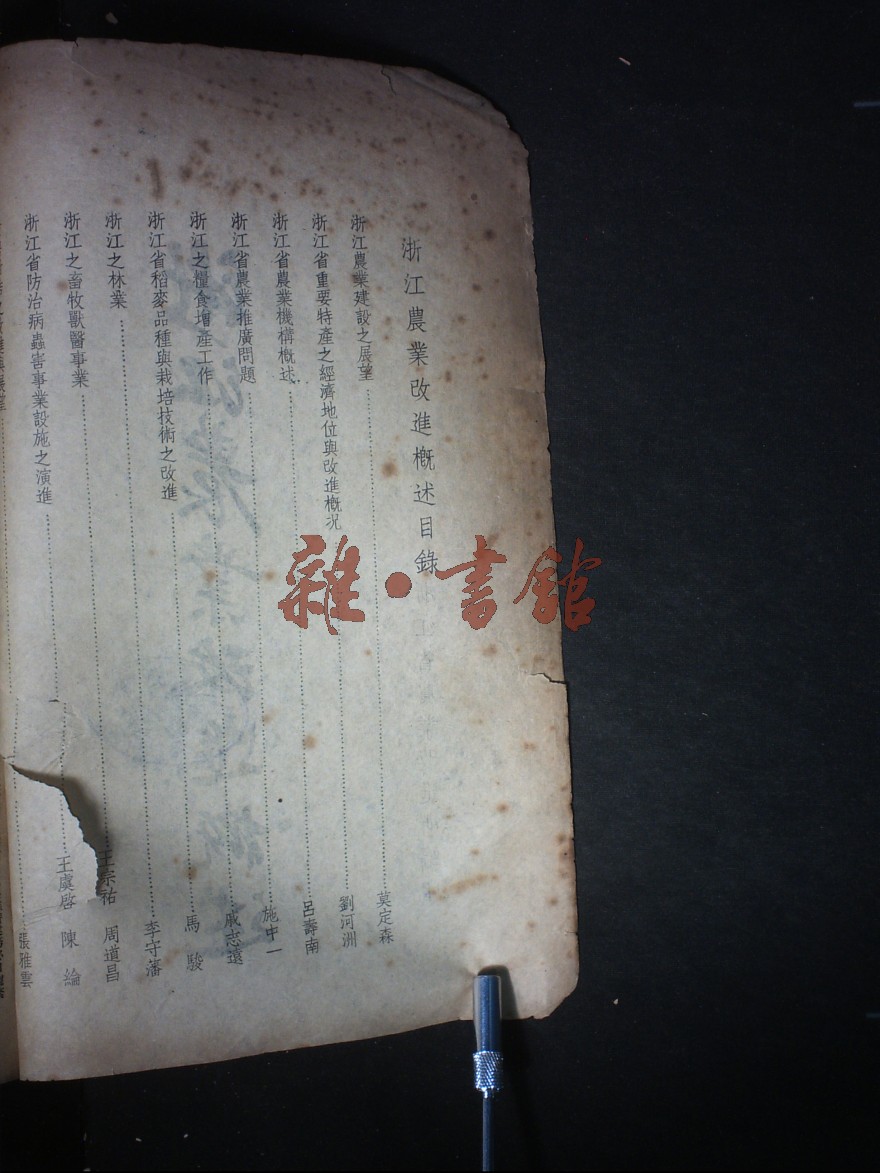 浙江農業改進概述目錄
浙江農業建設之展望 莫定森
浙江省重要特產之經濟地位與改進概況 劉河洲
浙江省農業機構概述 呂壽南
浙江省農業推廣問題 施中一
浙江之糧食增產工作 戚志遠
浙江省稻麥品種與栽培技術之改進 馬駿
浙江之林業 李守藩
浙江之畜牧獸醫事業 王宗祐 周道昌
浙江省防治病蟲害事業設施之演進 王虞啓 陳綸
張雅雲
雜·書館